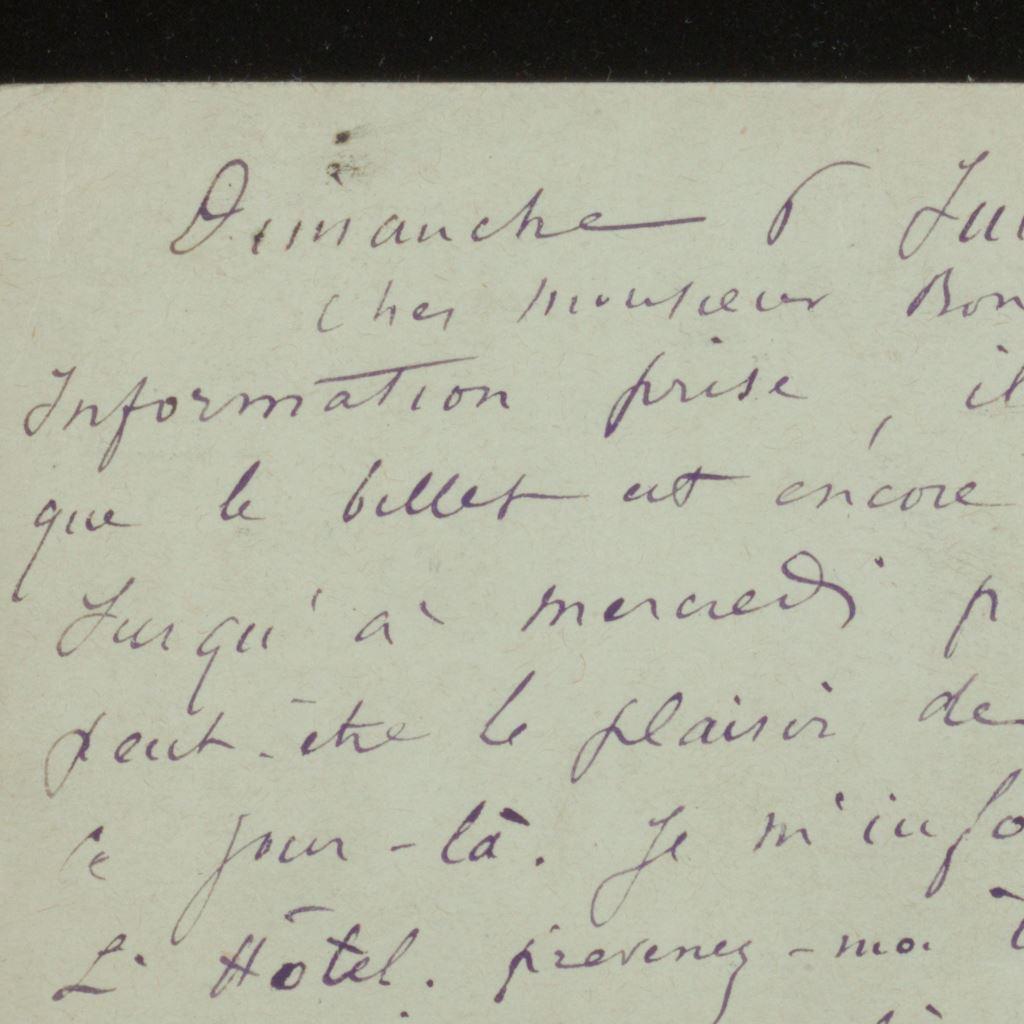 Dimanche 6
cher monsieur Bon
Information prise, il
que le billet est encore
Jusqu'à mercredi p
peut-être le plaisir de
ce jour-là. Je m'info
L' Hôtel. prevenez-moi